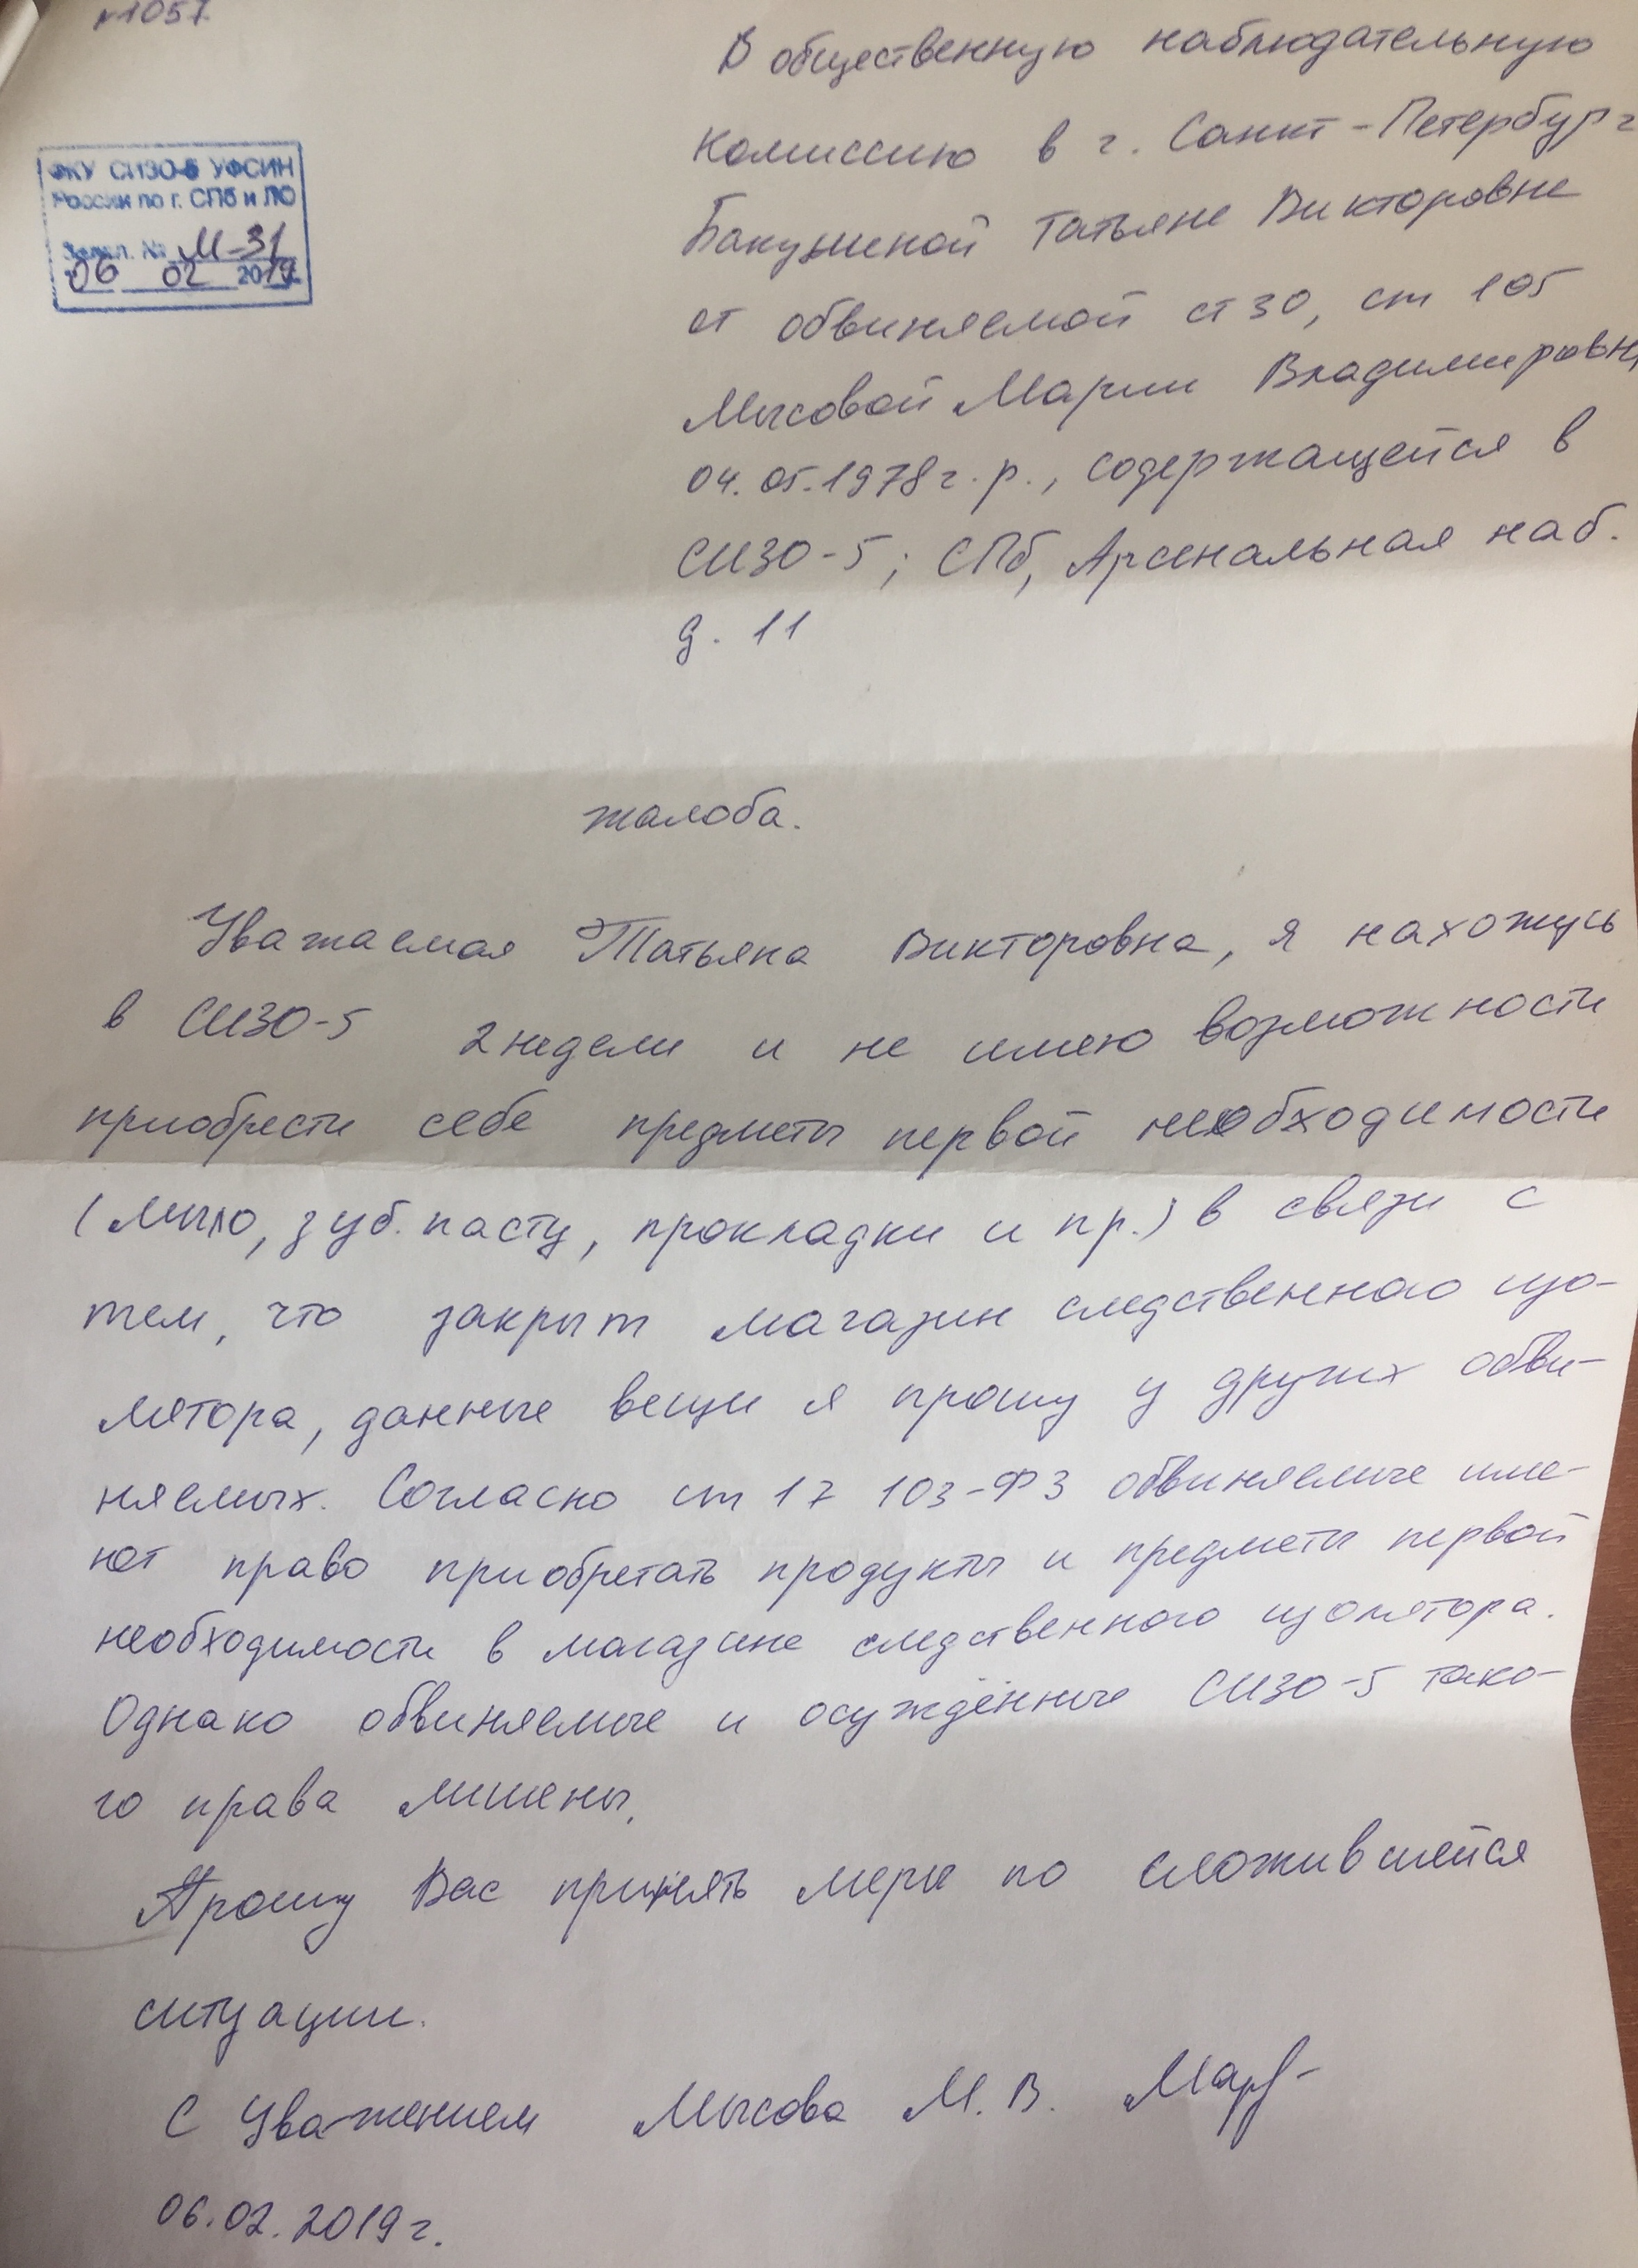 №1057
ФКУ СИЗО-5 УФСИН
России по г. СПб и ЛО
М-31
06 02 2019
В общественную наблюдательную
комиссию в г. Санкт-Петербург
Татьяне Викторовне
от обвиняемой ст 30, ст 105
Мысовой Марии Владимировн
04.05.1978г.р., содержащейся в
СИЗО-5; СПб, Арсенальная наб.
д. 11
жалоба.
Уважаемая Татьяна Викторовна, я нахожусь
в СИЗО-5 2 недели и не имею возможности
приобрести себе предметы первой необходимости
(мыло, зуб. пасту, прокладки и пр.) в связи с
тем, что закрыт магазин следственного изо-
лятора, данные вещи я прошу у других обви-
няемых. Согласно ст 17 103-ФЗ обвиняемые име-
ют право приобретать продукты и предметы первой
необходимости в магазине следственного изолятора.
Однако обвиняемые и осуждённые СИЗО-5 тако-
го права лишены.
Прошу Вас принять меры по сложившейся
ситуации.
С Уважением Мысова М.В.
06.02.2019г.